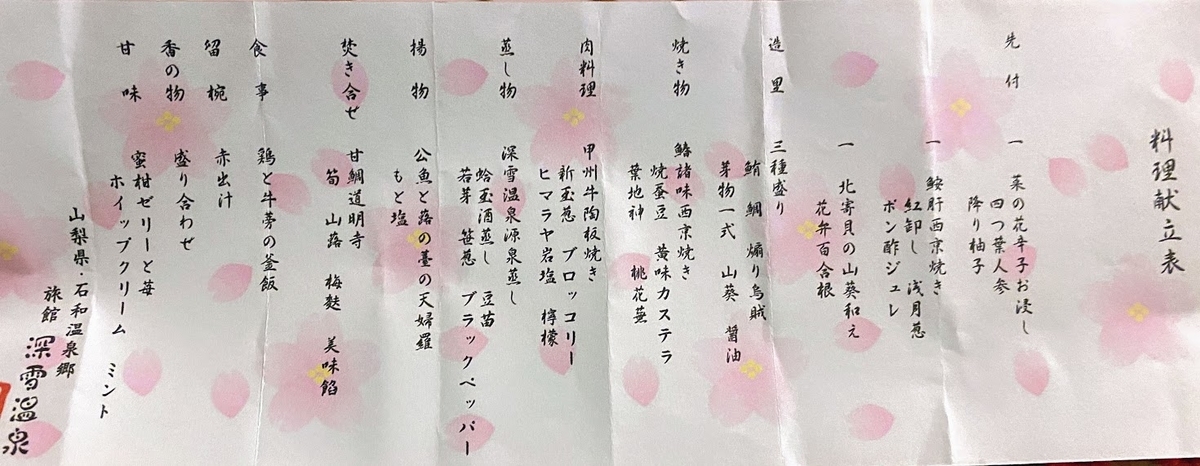 料理献立表
先付
一 菜の花辛子お浸し
四つ葉人参
降り柚子
一 鮟肝西京焼き
紅卸し 浅月葱
ポン酢ジュレ
一 北寄貝の山葵和え
花弁百合根
造里 三種盛り
鮪 鯛 煽り烏賊
芽物一式 山葵 醤油
焼き物
鰆諸味西京焼き
焼蚕豆 黄味カステラ
葉地神 桃花蕪
肉料理 甲州牛陶板焼き
新玉葱 ブロッコリー
ヒマラヤ岩塩 檸檬
蒸し物 深雪温泉源泉蒸し
蛤玉酒蒸し 豆苗
若芽 笹葱 ブラックペッパー
揚物 公魚と蕗の薹の天婦羅
もと塩
焚き合せ 甘鯛道明寺
筍 山蕗 梅麩 美味餡
食事 鶏と牛蒡の釜飯
留椀 赤出汁
香の物 盛り合わせ
甘味 蜜柑ゼリーと苺
ホイップクリーム ミント
山梨県・石和温泉郷
旅館 深雪温泉